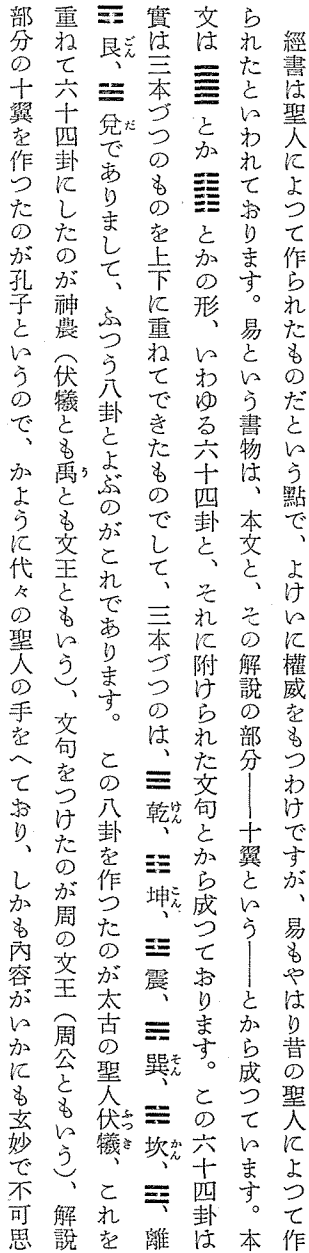 經書は聖人によつて作られたものだという點で、よけいに權威をもつわけですが、易もやはり昔の聖人によつて作
られたといわれております。易という書物は、本文と、その解説の部分――十翼という――とから成つています。本
文は ䷀ とか ䷁ とかの形、いわゆる六十四卦と、それに附けられた文句とから成つております。この六十四卦は
實は三本づつのものを上下に重ねてできたものでして、三本づつのは、☰ 乾、☷ 坤、☳ 震、☴ 巽、☵ 坎、☲、離
☶ 艮、☱ 兌でありまして、ふつう八卦とよぶのがこれであります。この八卦を作つたのが太古の聖人伏犧、これを
重ねて六十四卦にしたのが神農（伏犧とも禹とも文王ともいう）、文句をつけたのが周の文王（周公ともいう）、解説
部分の十翼を作つたのが孔子というので、かように代々の聖人の手をへており、しかも內容がいかにも玄妙で不可思